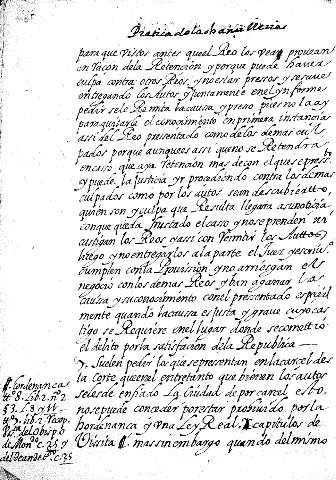 Practica de la chancilleria
para que vistos antes que el Reo los vea y provean
en raçon de la Retencion y porque puede haver
culpa contra otros Reos y no estar presos y se suele
entregando los Autos y juntamente en el ynforme
pedir se le Remita la causa y preso
para quitarle el conocimiento en primera instancia
assi del Reo presentado como de los demas cul
pados porque aunque es assi que no se Retendra
en caso que aya Retencion mas de con el que se
y puede la Justicia yr procediendo contra los demas
culpados como por los autos sean descubierto
quien son y culpa que Resulta llegara a su noticia
con que queda frustado el caso y no se prenden ni
castigan los Reos y assi con Remitir los Auttos
luego y no entregarlos a la parte el Juez y escriu
cumplen con la Provission y no arriesgan el
negocio con los demas Reos y ban a
causa y su conocimiento con el presentado espeçial
mente quando la causa es justa y grave cuyo cas
tigo se Requiere en el lugar donde se cometio
el delito por la satisfacion de la Republica
7. Suelen pedir los que se presentan en la carcel de
la Corte que en el entretanto que bienen los autos
se les de en fiado la Ciudad por carcel, esto
no se puede conceder por estar prohiuido por la
hordenança y una Ley Real. capitulos de
Visita massin embargo quando del mismo
hordenanca
tt.º 8. Lib. 2. n.º 2
53. L. 8
tt. 7. Lib. 2. Recop.
Vis.ta del Obispo
de Mon.do c. 25 y
del Dean de c. 25